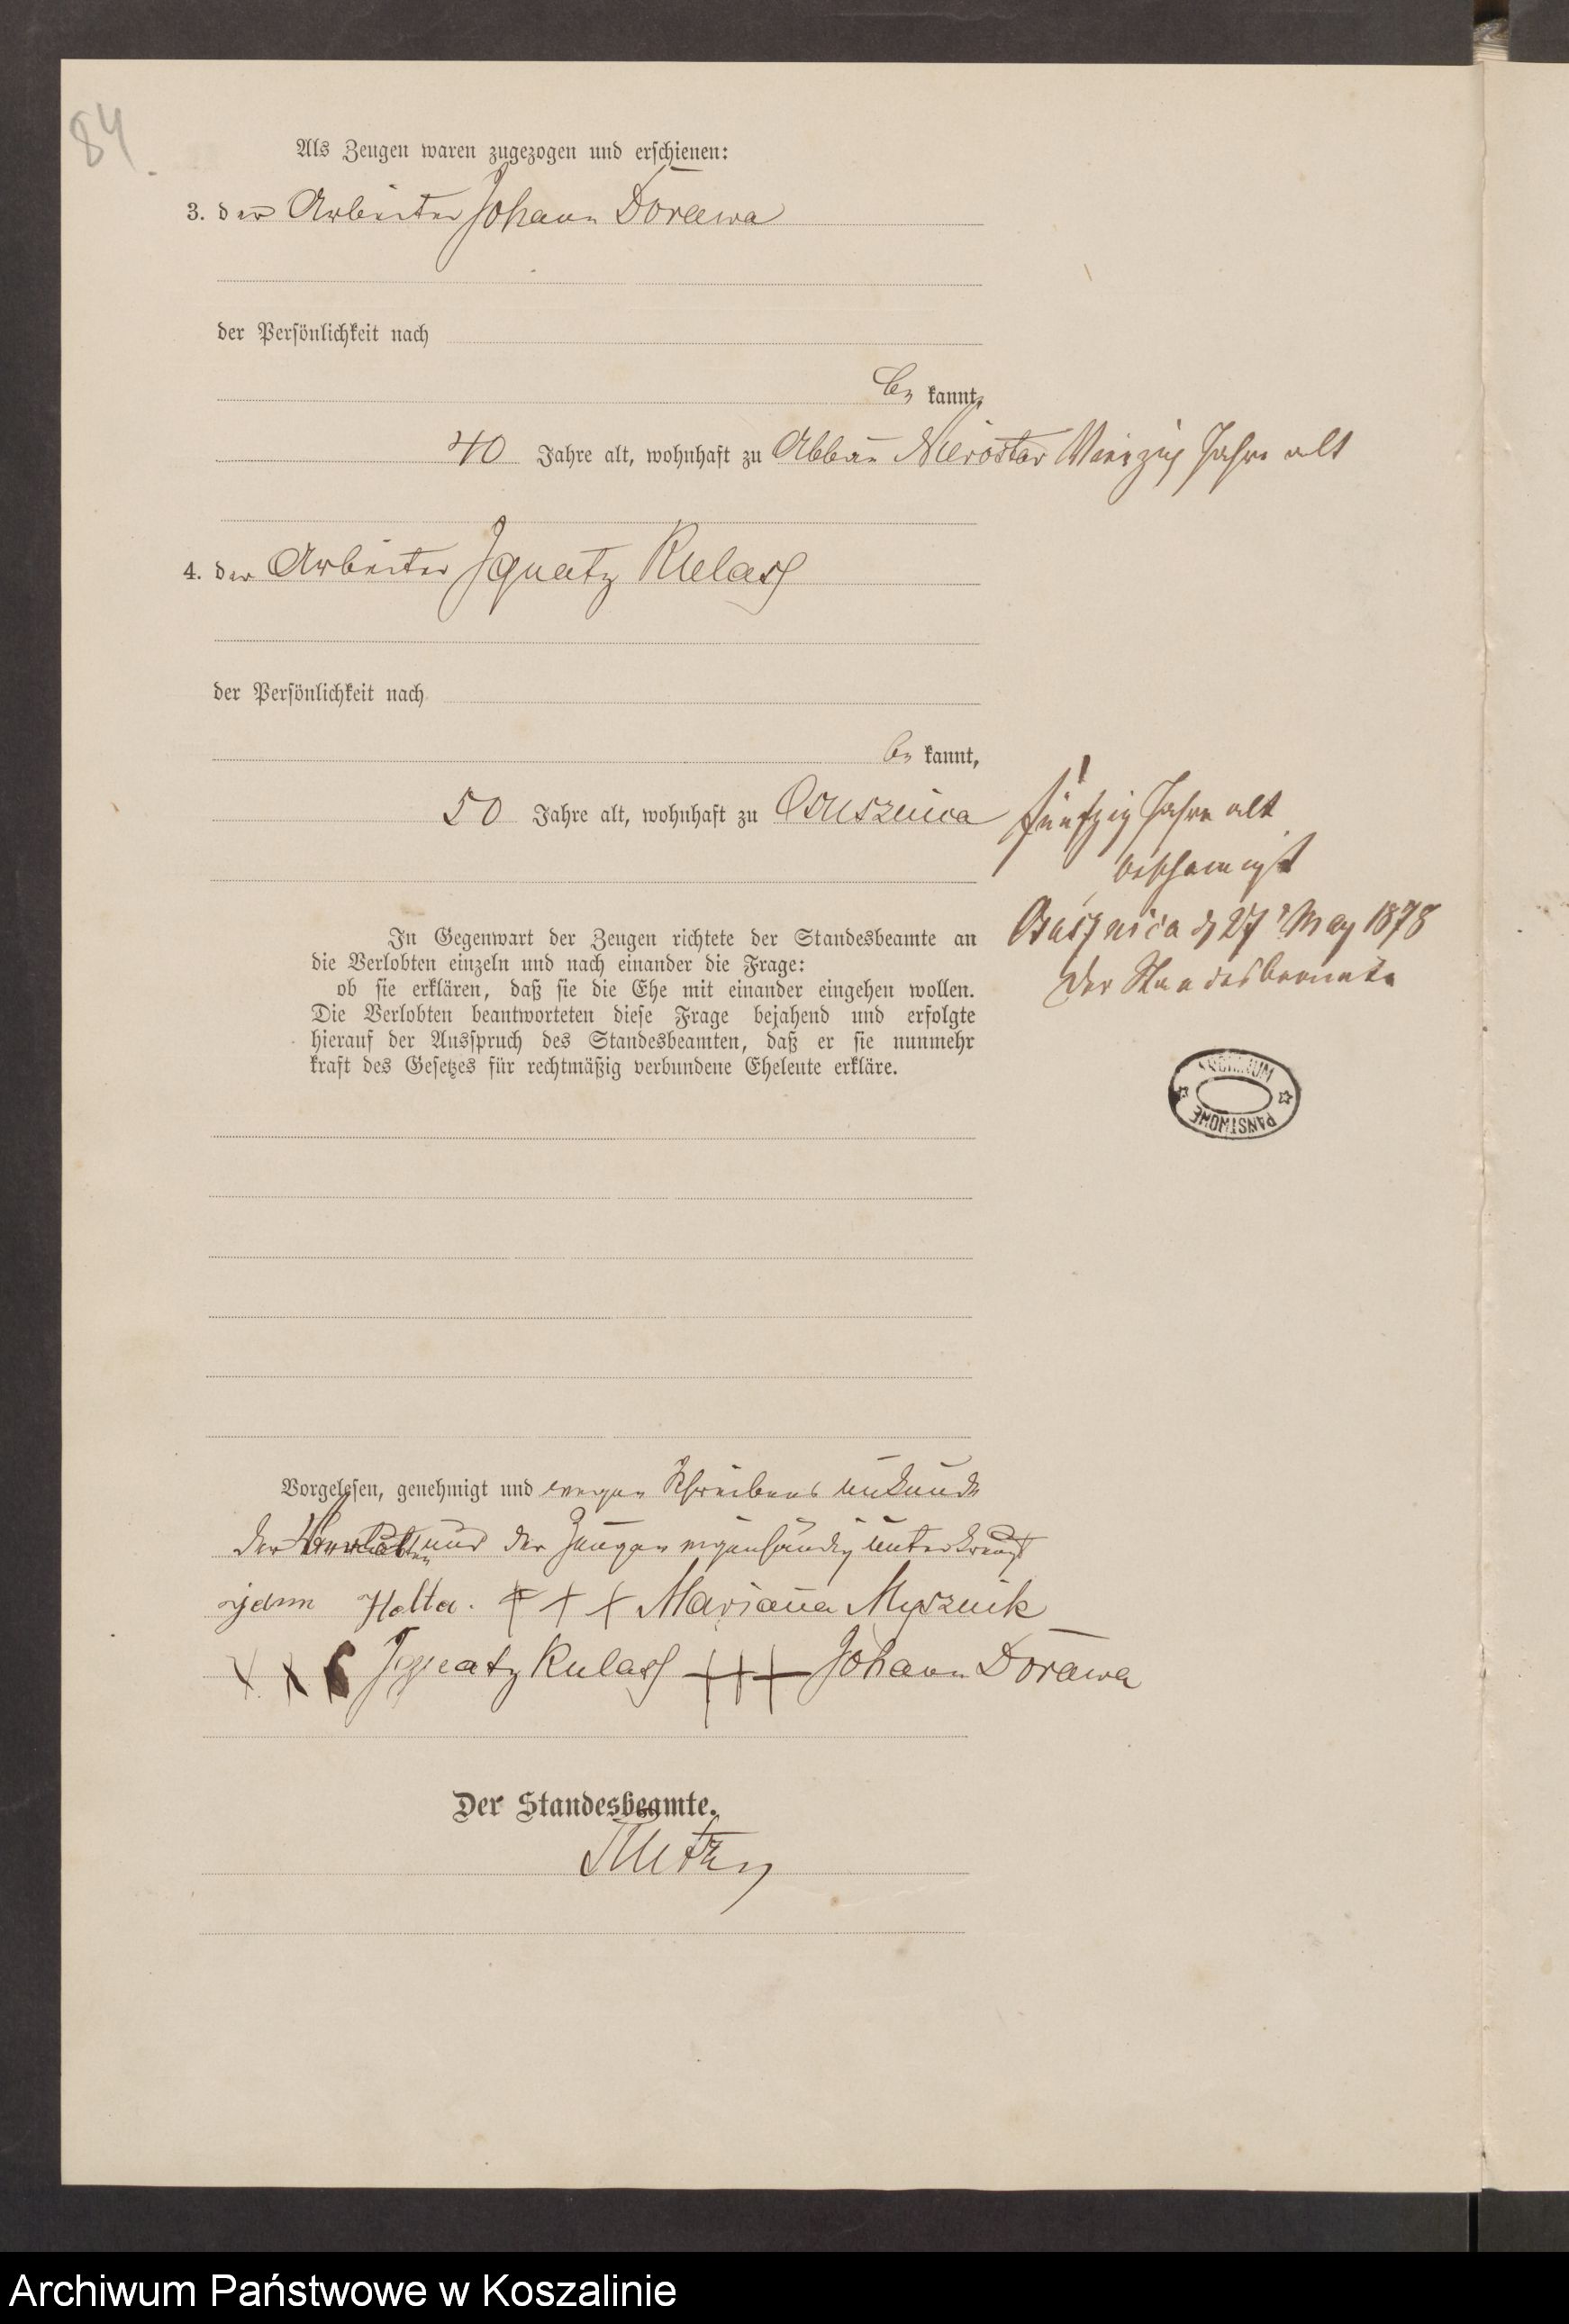 84.
Als Zeugen waren zugezogen und erschienen:
3. der Arbeiter Johann Dorawa
der Persönlichkeit nach
be kannt,
40 Jahre alt, wohnhaft zu Abbau Vierzig Jahre alt
4. der Arbeiter Ignatz Kulas
der Persönlichkeit nach
be kannt,
50 Jahre alt, wohnhaft zu Osusznica fünfzig Jahre alt
In Gegenwart der Zeugen richtete der Standesbeamte an
Osusznica d 27 May 1878
die Verlobten einzeln und nach einander die Frage:
Der Standesbeamte
ob sie erklären, daß sie die Ehe mit einander eingehen wollen.
Die Verlobten beantworteten diese Frage bejahend und erfolgte
hierauf der Ausspruch des Standesbeamten, daß er sie nunmehr
kraft des Gesetzes für rechtmäßig verbundene Eheleute erkläre.
ARCHIWUM PAŃSTWOWE
Vorgelesen, genehmigt und wegen Schreibens unkunde
der Verlobten und der Zeugen eigenhändig unterkreuzt
+ + + Marianna Mysznik
x x x Ignatz Kulas +++ Johann Dorawa
Der Standesbeamte.
Archiwum Państwowe w Koszalinie